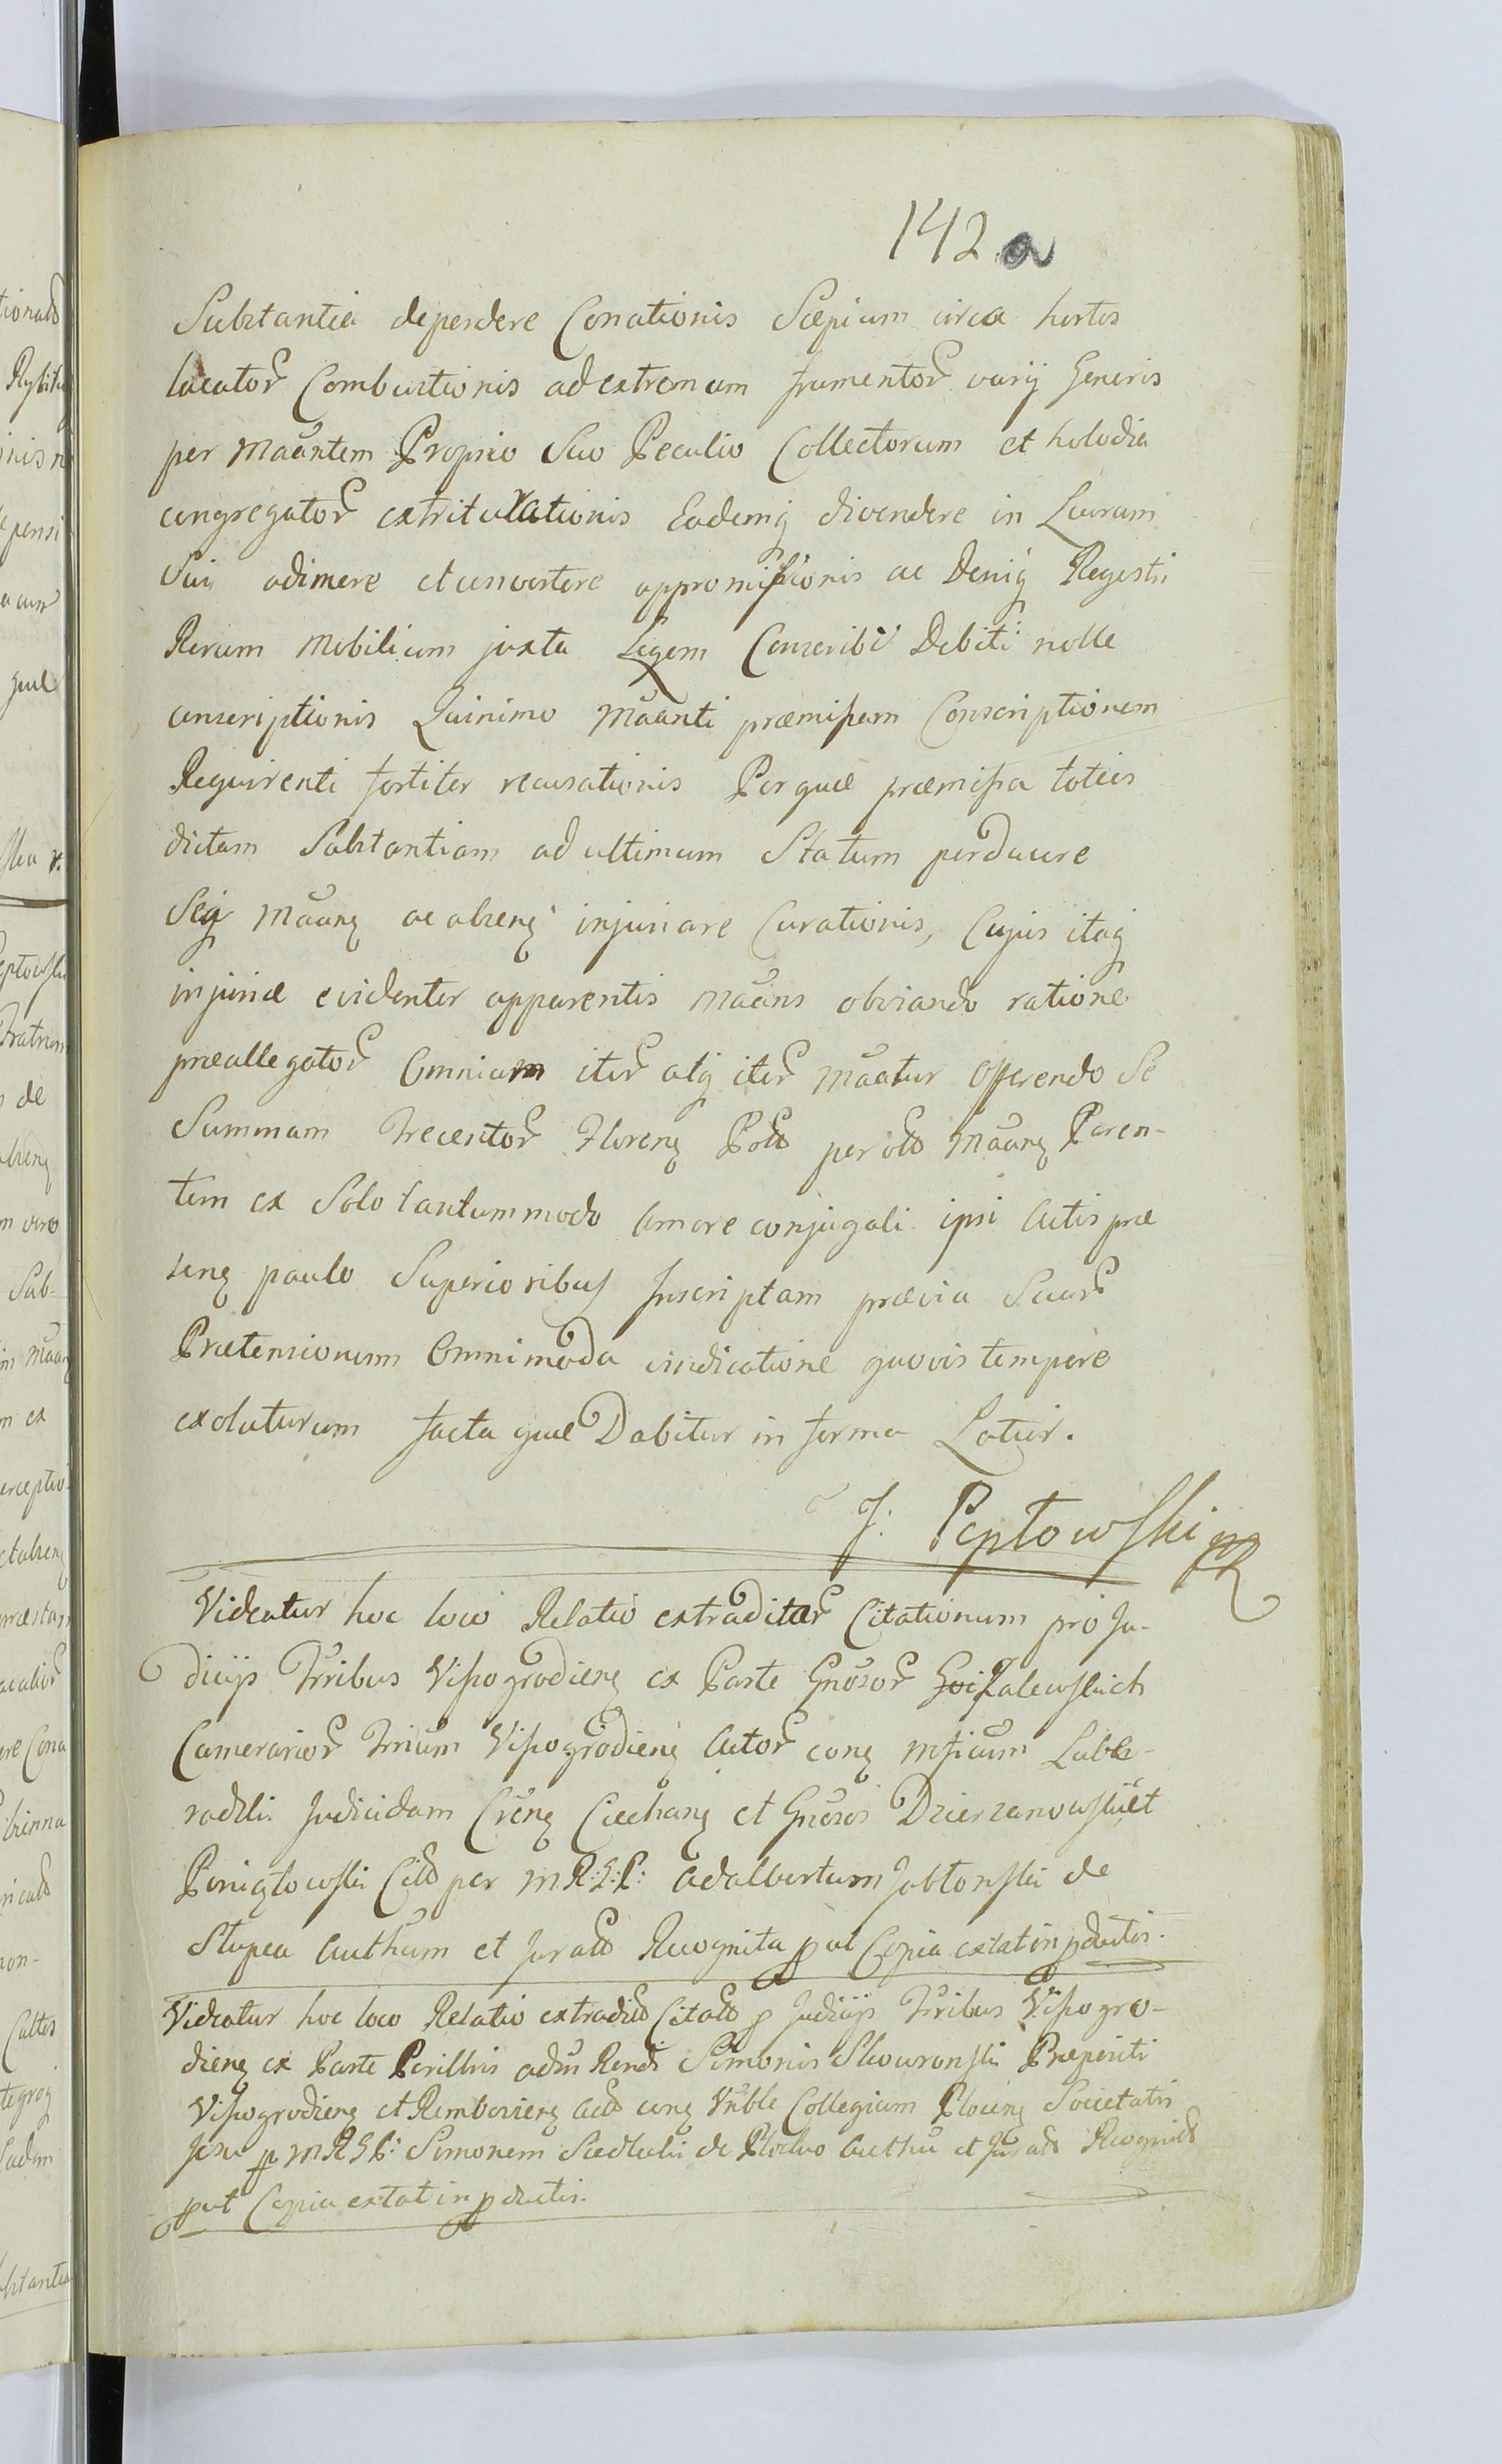 142 a
Substantia deperdere Conationis Sæpium circa hortos
locator Combustionis ad extremum frumentor varij Generis
per Maantem Proprio Suo Peculio Collectorum et holodia
congregator extriturationis Eademq divendere in Lucrum
Sui adimere et convertere appromissionis ac Deniq Regestri
Rerum Mobilium juxta Legem Conscribi Debiti nolle
conscriptionis Quinimo Maanti præmissam Conscriptionem
Requirenti fortiter recusationis Per quæ præmissa toties
dictam Substantiam ad ultimum Statum perducere
Seq Maanq ac absenq injuriare Curationis, Cujus itaq
injuriæ evidenter apparentis Maans obviando ratione
præallegator Omnium iter atq iter Maatur Offerendo Se
Summam Trecentor Florenq Polo per olo Maanq Paren-
tem ex Solo tantummodo Amore conjugali ipsi Actis præ
senq paulo Superioribus Inscriptam prævia Suar
Prætensionum Omnimoda vindicatione quovis tempore
exoluturum facta quæ Dabitur in forma Latior.
J: Peptowski mp
Videatur hoc loco Relatio extraditar Citationum pro Ju-
dicijs Trribus Vissogrodienq ex Parte Gnosor Zalewskich
Camerarior Trrium Vissogrodienq Actor conq Mficum Lubo-
radzki Judicidam Crenq Ciechanq et Gnosos Dzierzanowski et
Peniqtowski Cito per M R: G: P: Adalbertum Jabtonski de
Stupca Authum et Jurato Recognita put Copia extat in pductis.
Videatur hoc loco Relatio extradito Citato p Judicijs Trribus Vissogro-
dienq ex Parte Perillris adm Rendi Simonis Skowronski Præpositi
Vissogrodienq et Rembovienq Acto conq Vnble Collegium Plocenq Societatis
Jesu p M R G P: Simonem Siedlecki de Plocko Authu et Jurato Recognito
put Copia extat in pductis.